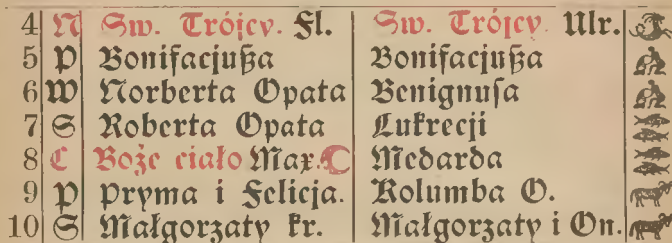 4 N Św. Trójcy. Fl. Św. Trójcy. Ulr.
5 P Bonifacjußa Bonifacjußa
6 W Norberta Opata Benignusa
7 S Roberta Opata Lukrecji
8 C Boże ciało Max. Medarda
9 P Pryma i Felicja. Kolumba O.
10 S Małgorzaty kr. Małgorzaty i On.